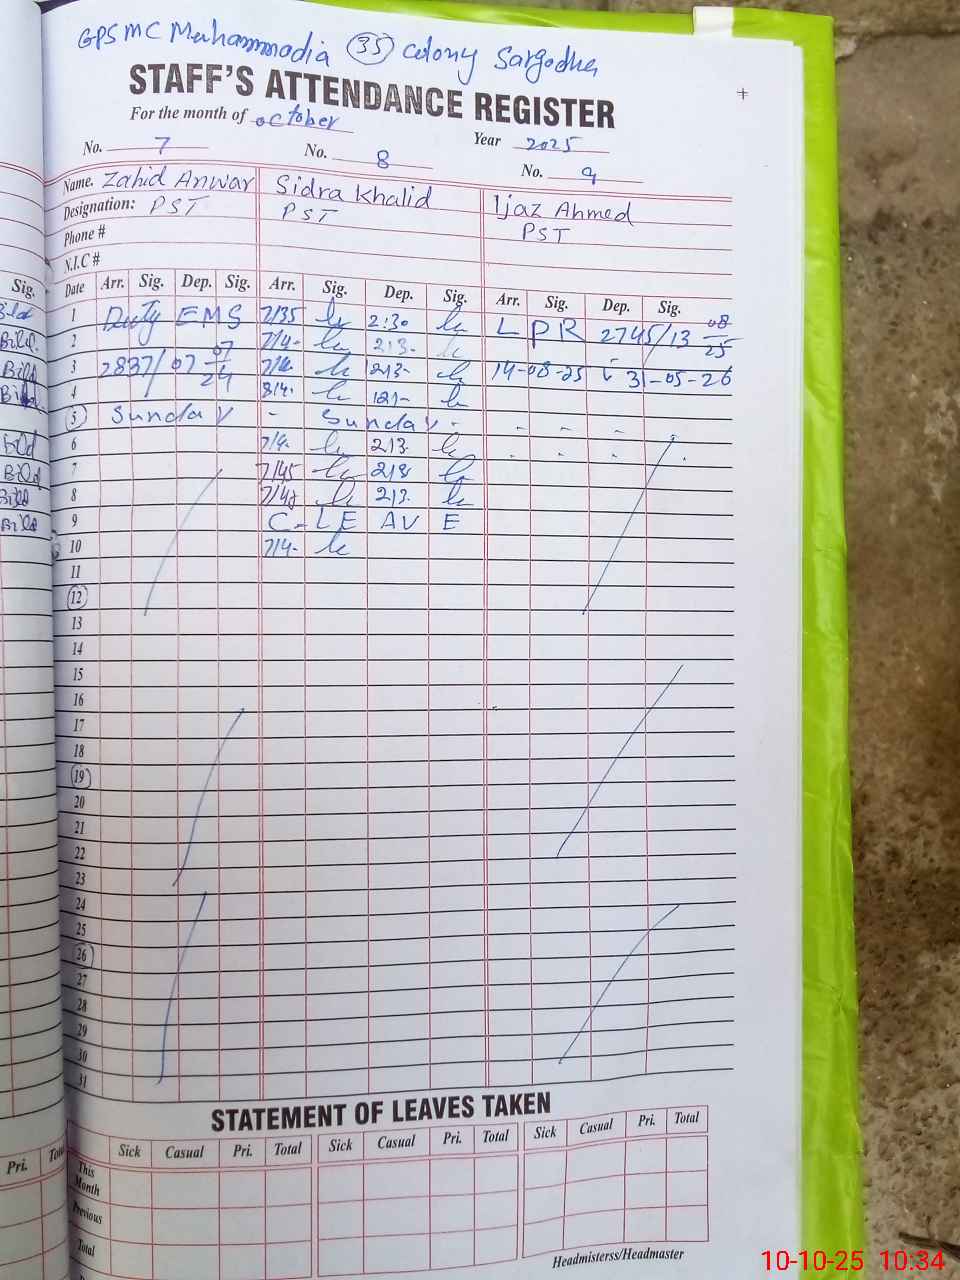 GPSMC Muhammadia (35) Colony Sargodha
STAFF'S ATTENDANCE REGISTER
For the month of October
Year 2025
No. 7 No. 8 No. 9
Name. Zahid Anwar Sidra Khalid Ijaz Ahmed
Designation: PST PST PST
Phone #
N.I.C #
Sig. Date Arr. Sig. Dep. Sig. Arr. Sig. Dep. Sig. Arr. Sig. Dep. Sig.
1 Duty EMS 7/35 2:30 LPR 2745/13 08/25
Bild. 2 7/4- 213-
Bild 3 2837/07 07/24 7/4. 213- 14-08-25 31-05-26
4 8/4. 121-
5 Sunday - Sunday - - - - -
Bild 6 7/4. 213.
Bild 7 7/45 213
Bild 8 7/4 213.
Bild 9 C-LEAVE
10 7/4-
11
12
13
14
15
16
17
18
19
20
21
22
23
24
25
26
27
28
29
30
31
STATEMENT OF LEAVES TAKEN
Pri. Total Sick Casual Pri. Total Sick Casual Pri. Total Sick Casual Pri. Total
This Month
Previous
Total
Headmisterss/Headmaster
10-10-25 10:34